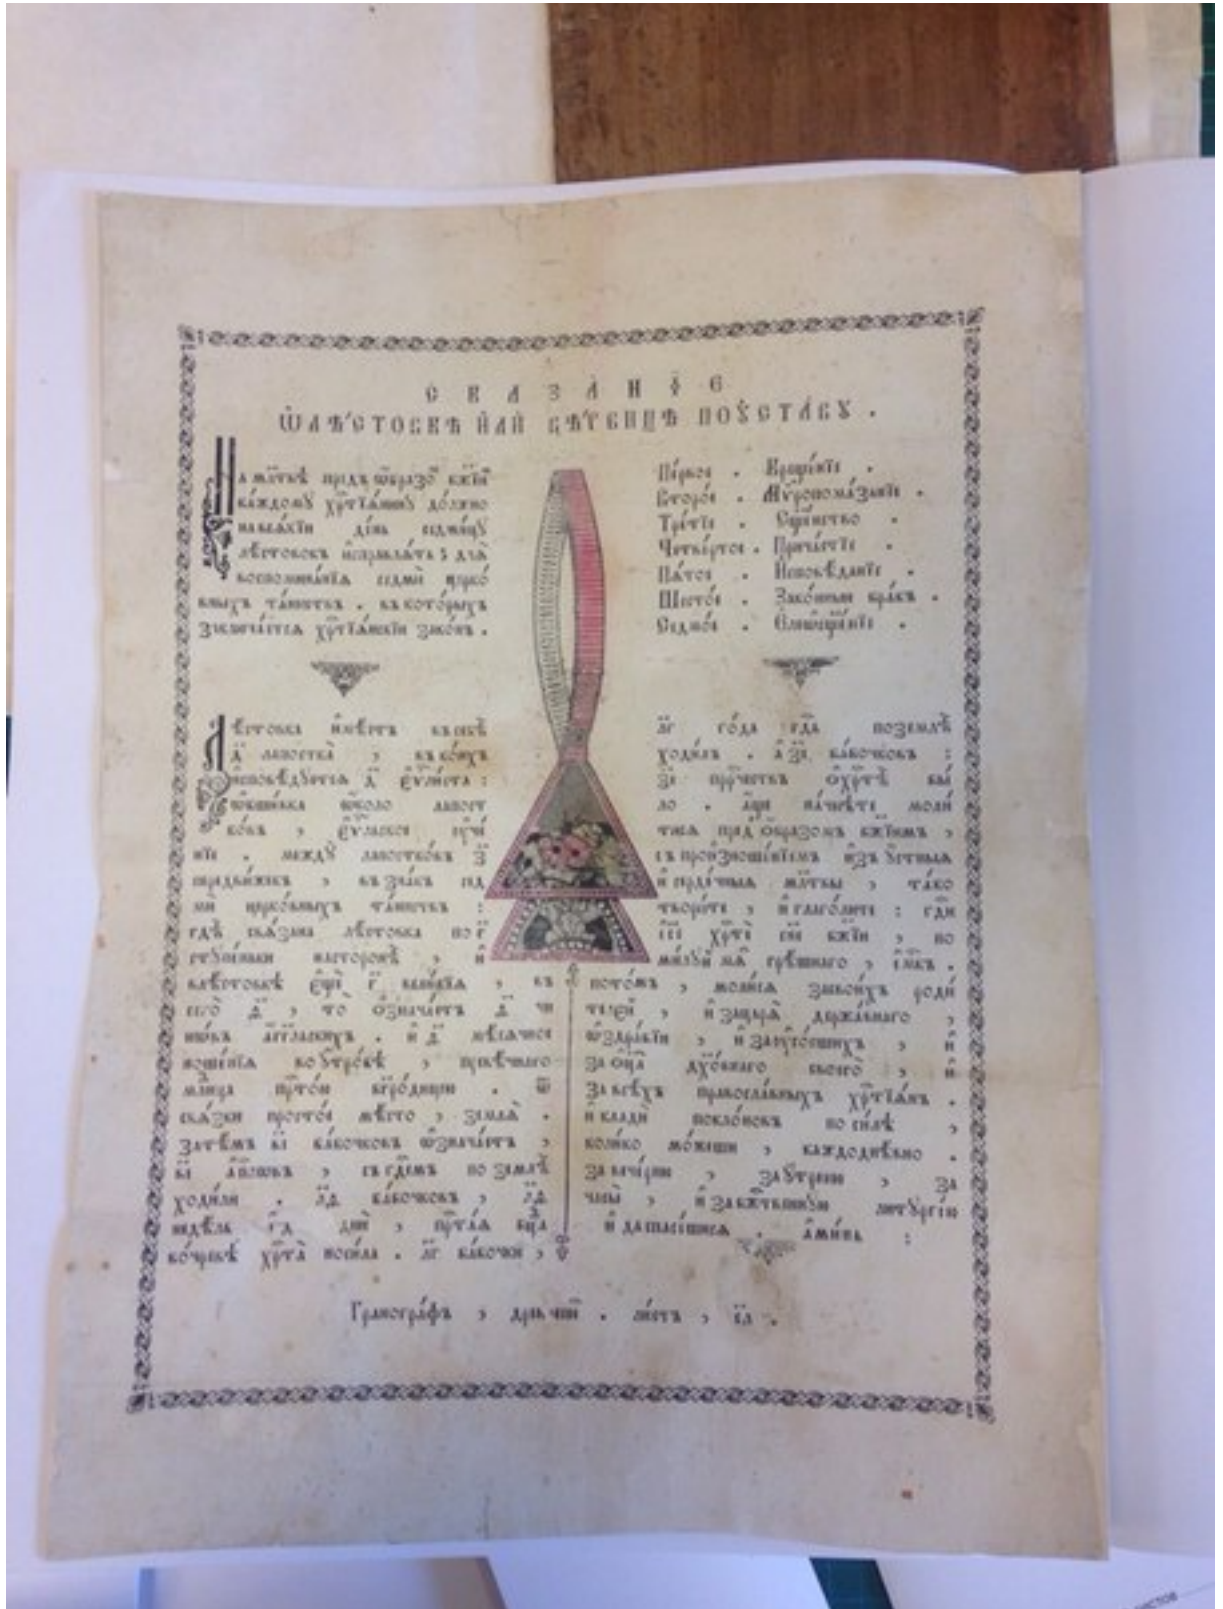 СКАЗА́НЇЕ
Ѡ҆ЛѢ́СТОВКѢ И҆ЛЍ ВѢ́ТВИЦѢ ПОꙊ҆СТА́ВꙊ .
На мл҃твѣ пред̾ ѡ҆́бразо бж҃їи
ка́ждомꙋ хрⷭ҇тїа́нинꙋ до́лжно
на всѧ́кїи де́нь седми́цꙋ
лѣ́стовокъ и҆справлѧ́ть ; длѧ̀
воспомина́нїѧ седмѝ церко́
вныхъ та́инствъ . въ кото́рыхъ
заключа́етсѧ хрⷭ҇тїа́нскїи зако́нъ .
Пе́рвое . Креще́нїе .
Второ́е . Мѵ́ропома́занїе .
Тре́тїе . Сщ҃е́нство .
Четве́ртое . Прича́стїе .
Пѧ́тое . И҆сповѣ́данїе .
Шесто́е . Зако́нныи бра́къ .
Седмо́е . Е҆леѡсщ҃е́нїе .
Лѣ́стовка и҆мѣ́етъ въ себѣ̀
д҃ лапостка̀ , въ ко́ихъ
и҆сповѣ́дꙋетсѧ д҃ є҆ѵⷢ҇ли́ста :
ѡ҆бши́вка ѡ҆́коло лапост
ко́въ , є҆ѵⷢ҇льское ᲂу҆че́
нїе . междꙋ̀ лапостко́въ з҃
передви́жекъ , въ зна́къ сед
мѝ церко́вныхъ та́инствъ :
гдѣ̀ свѧ́зана лѣ́стовка по г҃
стꙋпе́ньки насторонѣ̀ , и҆
влѣ́стовкѣ є҆щѐ г҃ вели́кїѧ , въ
сего̀ д҃ , то̀ ѡ҆знача́етъ д҃ чи
но́въ а҆́гг҃льскихъ . и҆ д҃ мѣ́сѧчное
ноше́нїѧ во ᲂу҆тро́бѣ , превѣ́чнаго
млⷣе́нца прⷭ҇то́ю бцⷣ҇ею . ѿ
свѧ́зки просто́е мѣ́сто , землѧ̀ .
Зате́мъ в҃і ба́бочковъ ѡ҆знача́етъ ,
в҃і а҆пⷭ҇ловъ , съ гдⷭ҇емъ по землѣ̀
ходи́ли . л҃д ба́бочковъ , л҃д
недѣ́ль є҃д днѝ , прⷭ҇та́ѧ бцⷣа
во́чревѣ хрⷭ҇та̀ носи́ла . л҃г ба́бочки ,
л҃г го́да гдⷭ҇ь поземлѣ̀
ходи́лъ . а҆ з҃і , ба́бочковъ :
з҃і прⷪ҇ро́чествъ ѡ҆хрⷭ҇тѣ̀ бы́
ло . а҆́ще на́чнете моли́
тисѧ пред̾ ѻ҆́бразомъ бж҃їимъ ,
съ произноше́нїемъ и҆зъ ᲂу҆́стныѧ
и҆ серде́чныѧ мл҃твы , та́ко
твори́те , и҆ глаго́лите : гдⷭ҇и
і҆и҃се хрⷭ҇тѐ сн҃е бж҃їи , по
ми́лꙋи мѧ̀ грѣ́шнаго , а҆ми́нь .
пото́мъ , моли́сѧ засвои́хъ роди́
телеи , и҆ зацарѧ̀ держа́внаго ,
ѡ҆здра́вїи , и҆ заᲂу҆со́пшихъ , и҆
за ѻ҆ц҃а̀ дꙋхо́внаго своего̀ , и҆
за всѣ́хъ правосла́вныхъ хрⷭ҇тїа́нъ .
и҆ кладѝ покло́новъ по си́лѣ ,
коли́ко мо́жеши , каждодне́вно .
За вече́рню , заᲂу҆́треню , за
часы̀ , и҆ забжⷭ҇твеннꙋю литꙋргі́ю
и҆ да спасе́шисѧ . а҆ми́нь :
Гранографъ , дре́внїи . ли́стъ , .